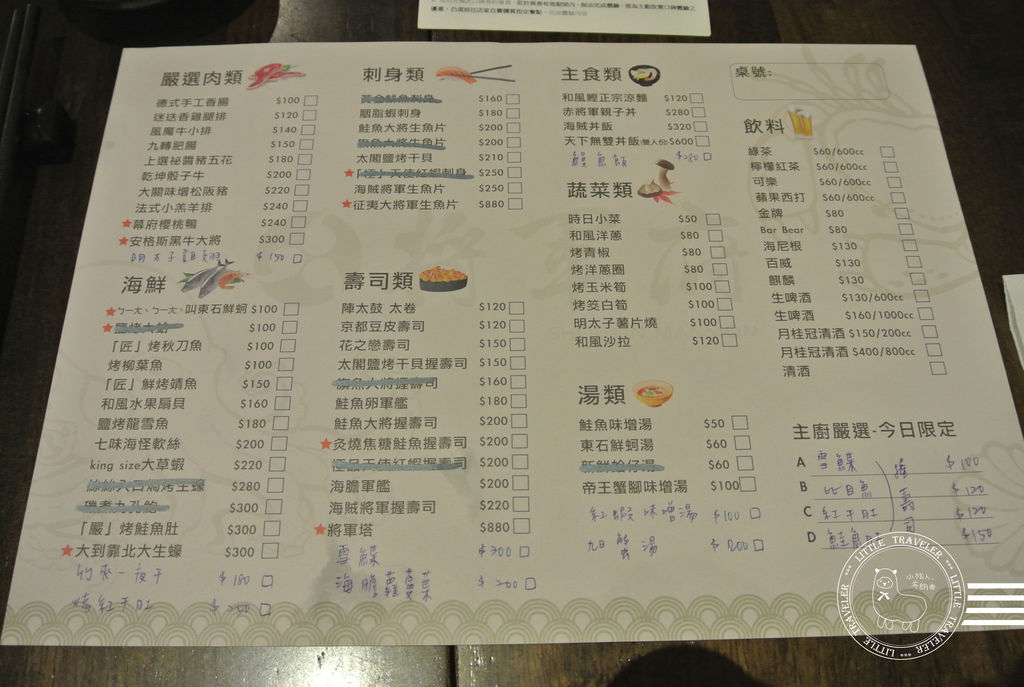 嚴選肉類
德式手工香腸 $100
迷迭香雞腿排 $120
風魔牛小排 $140
九轉肥腸 $150
上選祕醬豬五花 $180
乾坤骰子牛 $200
大關味增松阪豬 $220
法式小羔羊排 $240
★幕府櫻桃鴨 $240
★安格斯黑牛大將 $300
明太子雞翅 $150
海鮮
★ㄅㄧㄤˋㄅㄧㄤˋ叫東石鮮蚵 $100
★鹽烤大蛤 $100
「匠」烤秋刀魚 $100
烤柳葉魚 $100
「匠」鮮烤靖魚 $150
和風水果扇貝 $160
鹽烤龍雪魚 $180
七味海怪軟絲 $200
king size大草蝦 $220
$280
$300
「嚴」烤鮭魚肚 $300
★大到靠北大生蠔 $300
竹夾一夜干 $180
烤紅干肚
刺身類
黃金鯡魚刺身 $160
胭脂蝦刺身 $180
鮭魚大將生魚片 $200
旗魚大將生魚片 $200
太閣鹽烤干貝 $210
★「極」天使紅蝦刺身 $250
海賊將軍生魚片 $250
★征夷大將軍生魚片 $880
壽司類
陣太鼓 太卷 $120
京都豆皮壽司 $120
花之戀壽司 $150
太閣鹽烤干貝握壽司 $150
旗魚大將握壽司 $160
鮭魚卵軍艦 $180
鮭魚大將握壽司 $200
★灸燒焦糖鮭魚握壽司 $200
極品天使紅蝦握壽司 $200
海膽軍艦 $200
海賊將軍握壽司 $220
★將軍塔 $880
雪鰈 $300
海膽蘿蔓葉 $200
主食類
和風鰹正宗涼麵 $120
赤將軍親子丼 $280
海賊丼飯 $320
天下無雙丼飯(雙人份) $600
鰻魚飯 $280
蔬菜類
時日小菜 $50
和風洋蔥 $80
烤青椒 $80
烤洋蔥圈 $80
烤玉米筍 $100
烤筊白筍 $100
明太子薯片燒 $100
和風沙拉 $120
湯類
鮭魚味增湯 $50
東石鮮蚵湯 $60
新鮮蛤仔湯 $60
帝王蟹腳味增湯 $100
紅蝦味噌湯 $100
蟹湯 $200
桌號:
飲料
綠茶 $60/600cc
檸檬紅茶 $60/600cc
可樂 $60/600cc
蘋果西打 $60/600cc
金牌 $80
Bar Bear $80
海尼根 $130
百威 $130
麒麟 $130
生啤酒 $130/600cc
生啤酒 $160/1000cc
月桂冠清酒 $150/200cc
月桂冠清酒 $400/800cc
清酒
主廚嚴選-今日限定
A 雪鰈 握 $100
B 比目魚 壽 $120
C 紅干肚 司 $120
D 鮭魚 $150
LITTLE TRAVELER
LITTLE TRAVELER
LITTLE TRAVELER
小旅人